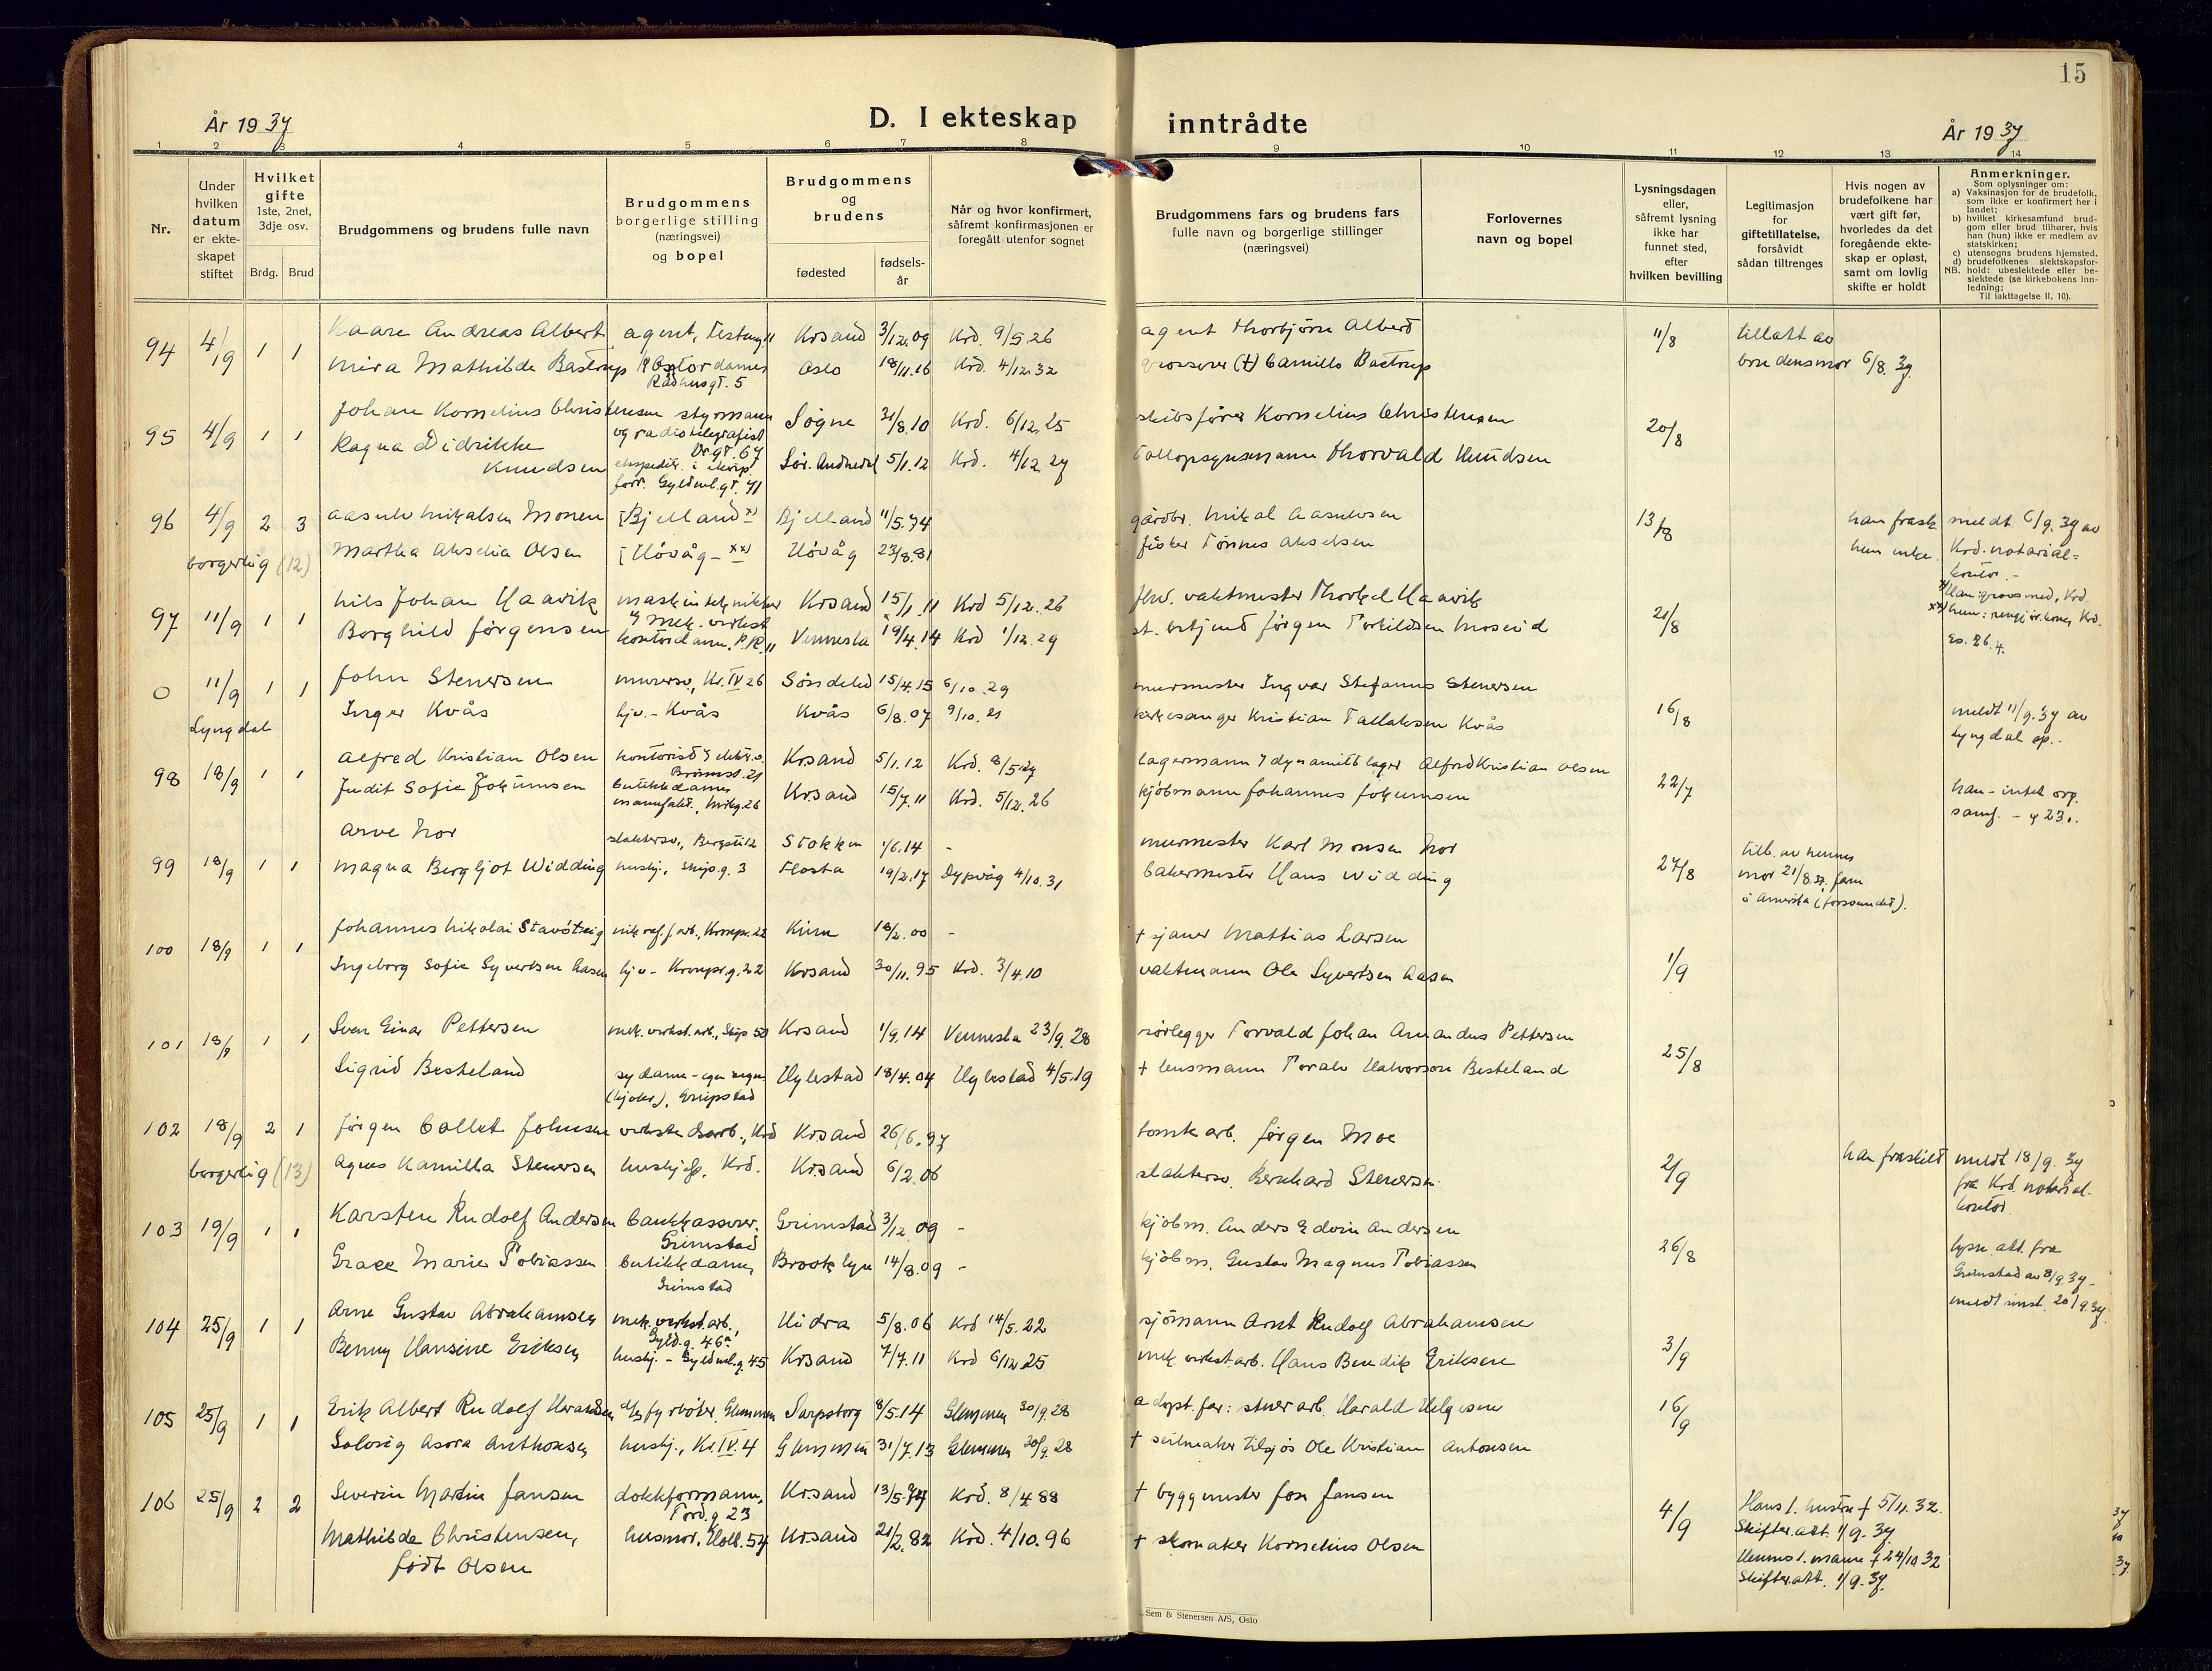 15
År 1937
D. I ekteskap
inntrådte
År 1937
1 2 3 4 5 6 7 8 9 10 11 12 13 14
Nr.
Under hvilken datum er ekteskapet stiftet
Hvilket gifte
1ste, 2net, 3dje osv.
Brdg. Brud
Brudgommens og brudens fulle navn
Brudgommens borgerlige stilling (næringsvei) og bopel
Brudgommens og brudens
fødested
fødsels-år
Når og hvor konfirmert, såfremt konfirmasjonen er foregått utenfor sognet
Brudgommens fars og brudens fars fulle navn og borgerlige stillinger (næringsvei)
Forlovernes navn og bopel
Lysningsdagen eller, såfremt lysning ikke har funnet sted, efter hvilken bevilling
Legitimasjon for giftetillatelse, forsåvidt sådan tiltrenges
Hvis nogen av brudefolkene har vært gift før, hvorledes da det foregående ekteskap er opløst, samt om lovlig skifte er holdt
Anmerkninger.
Som oplysninger om:
a) Vaksinasjon for de brudefolk, som ikke er konfirmert her i landet;
b) hvilket kirkesamfund brudgom eller brud tilhører, hvis han (hun) ikke er medlem av statskirken;
c) utensogns brudens hjemsted.
d) brudefolkenes slektskapsforhold: ubeslektede eller beslektede (se kirkebokens innledning;
NB. Til iakttagelse II. 10).
94 4/9 1 1 Kaare Andreas Albert agent, Festning 11 Krsand 3/12.09 Krd. 9/5.26 agent Thorbjörn Albert 11/8 tillatt av
Mira Mathilde Bastrup Kontordame Rådhusgt. 5 Oslo 18/11.16 Krd. 4/12.32 grosserer (†) Camillo Bastrup brudens mor 6/8.37.
95 4/9 1 1 Johan Kornelius Christensen styrmann og radiotelegrafist Søgne 31/8.10 Krd. 6/12.25 skibsfører Kornelius Christensen 20/8
Ragna Didrikke Knudsen Sør. Audnedal 5/1.12 Krd. 4/12.27 Tollopsynsmann Thorvald Knudsen
96 4/9 2 3 Aasulv Mikalsen Monen [Bjelland x) Bjelland 11/5.74 gårdbr. Mikal Aasulvsen 13/8 han frask. meldt 6/9.37 av
borgerlig (12) Martha Akselia Olsen [Høvåg - xx) Høvåg 23/8.81 fisker Tönnes Akselsen hun enke. Krd. notarial-
kontor.-
97 11/9 1 1 Nils Johan Haavik maskintekniker Krsand 15/1.11 Krd 5/12.26 fhv. vaktmester Thorkel Haavik 21/8 x) Han: grovsmed, Krd.
Borghild Jørgensen kontordame Vennesla 19/4.14 Krd 1/12.29 st. betjent Jörgen Torkildsen Moseid xx) hun: rengjör.kone, Krd.
0 11/9 1 1 John Stenersen murersv., Kr. IV 26 Söndeled 15/4.15 6/10.29 murmester Ingvar Stefanus Stenersen 16/8
Lyngdal Inger Kvås hjv. - Kvås Kvås 6/8.07 9/10.21 kirkesanger Kristian Tallaksen Kvås meldt 11/9.37 av
Lyngdal sp.-
98 18/9 1 1 Alfred Kristian Olsen Krsand 5/1.12 Krd. 8/5.27 lagermann i dynamitlager Alfred Kristian Olsen 22/7
Judit Sofie Jokumsen butikkdame Krsand 15/7.11 Krd. 5/12.26 kjöbmann Johannes Jokumsen han - intet org.
samf. -
99 18/9 1 1 Arve Nor slaktersv., Bergsti 12 Stokken 1/6.14 - murmester Karl Monsen Nor 27/8 till. av hennes
Magna Bergljot Widding hushj., Skip.g. 3 Flosta 19/2.17 Dypvåg 4/10.31 bakermester Hans Widding mor 21/8.37, farn
i Amerika (forsvundet).
100 18/9 1 1 Johannes Nikolai Kinn 18/2.00 - † sjauer Mattias Larsen 1/9
Ingeborg Sofie Syvertsen Aasen hjv - Kronpr.g. 22 Krsand 30/11.95 Krd. 3/4.10 vaktmann Ole Syvertsen Aasen
101 18/9 1 1 Sven Einar Pettersen mek. verkst.arb., Skip. 50 Krsand 1/9.14 Vennesla 23/9.28 rörlegger Torvald Johan Amandus Pettersen 25/8
Sigrid Besteland sydame Hylestad 18/4.04 Hylestad 4/5.19 † lensmann Torale Halvorson Besteland
102 18/9 2 1 Jörgen Collet Johnsen verkstedarb., Krd Krsand 26/6.97 tomtearb. Jörgen Moe 2/9 han fraskilt meldt 18/9.37
borgerlig (13) Agnes Kamilla Stenersen hushjelp, Krd. Krsand 6/2.06 slaktersv. Bernhard Stenersen fra Krd. notarial-
kontor.
103 19/9 1 1 Karsten Rudolf Andersen bankkasserer, Grimstad Grimstad 3/12.09 - kjöbm. Anders Edvin Andersen 26/8 lysn. att. fra
Grace Marie Tobiassen butikkdame, Grimstad Brooklyn 14/8.09 - kjöbm. Gustav Magnus Tobiassen Grimstad av 8/9.37 -
meldt smst. 20/9.37.
104 25/9 1 1 Arne Gustav Abrahamsen mek. verkst.arb., Gyld.g. 46a Hidra 5/8.06 Krd 14/5.22 sjömann Arnt Rudolf Abrahamsen 3/9
Benny Hansine Eriksen hushj. - Gyldenl.g. 45 Krsand 7/7.11 Krd 6/12.25 mek verkst.arb. Hans Bendik Eriksen
105 25/9 1 1 Erik Albert Rudolf Haraldsen fyrböter, Glemmen Sarpsborg 8/5.14 Glemmen 30/9.28 adopt. far: stuerarb. Harald Helgesen 16/9
Solveig Asora Anthonsen hushj., Kr. IV. 4 Glemmen 31/7.13 Glemmen 30/9.28 † seilmaker tilsjös Ole Kristian Antonsen
106 25/9 2 2 Severin Martin Jansen dokkformann, Tord.g 23 Krsand Krd. 8/4 88 † byggmester Jon Jansen 4/9 Hans 1. hustru † 5/11.32.
Skifteratt. 1/9.37
Mathilde Christensen, husmor, Holb. 57 Krsand 21/2.82 Krd. 4/10.96 † skomaker Kornelius Olsen Hennes 1. mann † 24/10 32
født Olsen Skifter.att. 1/9.37.
Sem & Stenersen A/S, Oslo